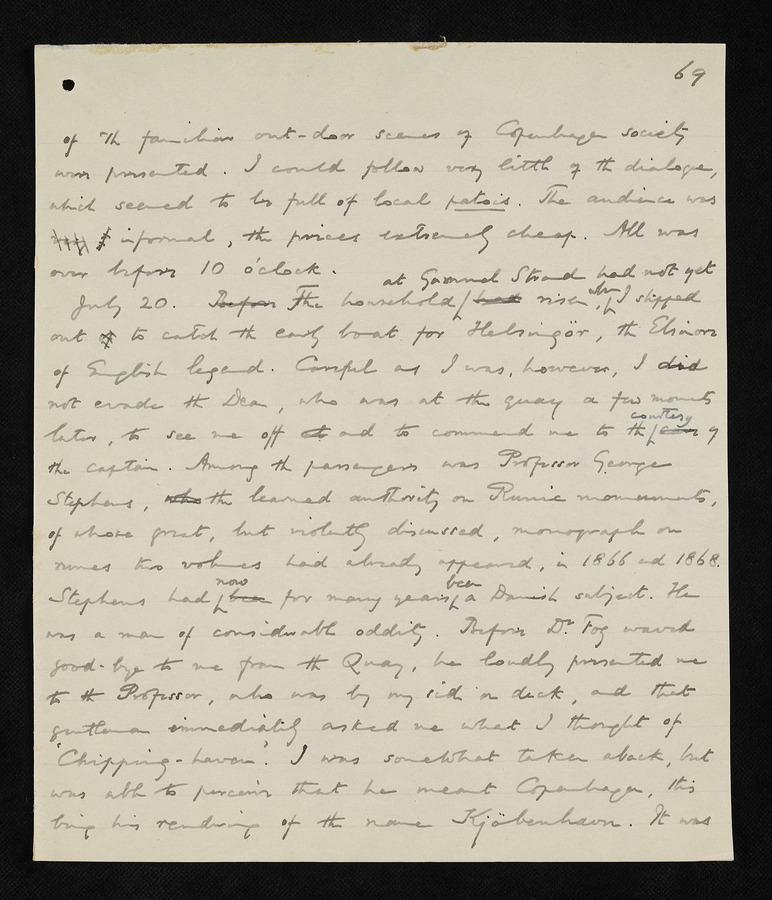 69
of the familiar out-door scenes of Copenhagen society
were presented. I could follow very little of the dialogue,
which seemed to be full of local patois. The audience was
informal, the prices extremely cheap. All was
over before 10 o'clock.
at Gammel Strand had not yet
July 20. Before The household had risen, when I slipped
out to catch the early boat for Helsingör, the Elsinore
of English legend. Careful as I was, however, I did
not evade the Dean, who was at the quay a few moments
courtesy
later, to see me off and to commend me to the of
the captain. Among the passengers was Professor George
Stephens, who the learned authority on Runic monuments,
of whose great, but violently discussed, monograph on
runes two volumes had already appeared, in 1866 and 1868.
now been
Stephens had been for many years, a Danish subject. He
was a man of considerable oddity. Before Dr. Fog waved
good-bye to me from the Quay, he loudly presented me
to the Professor, who was by my side on deck, and that
gentleman immediately asked me what I thought of
'Chipping-haven'. I was somewhat taken aback, but
was able to perceive that he meant Copenhagen, this
being his rendering of the name Kjöbenhavn. It was